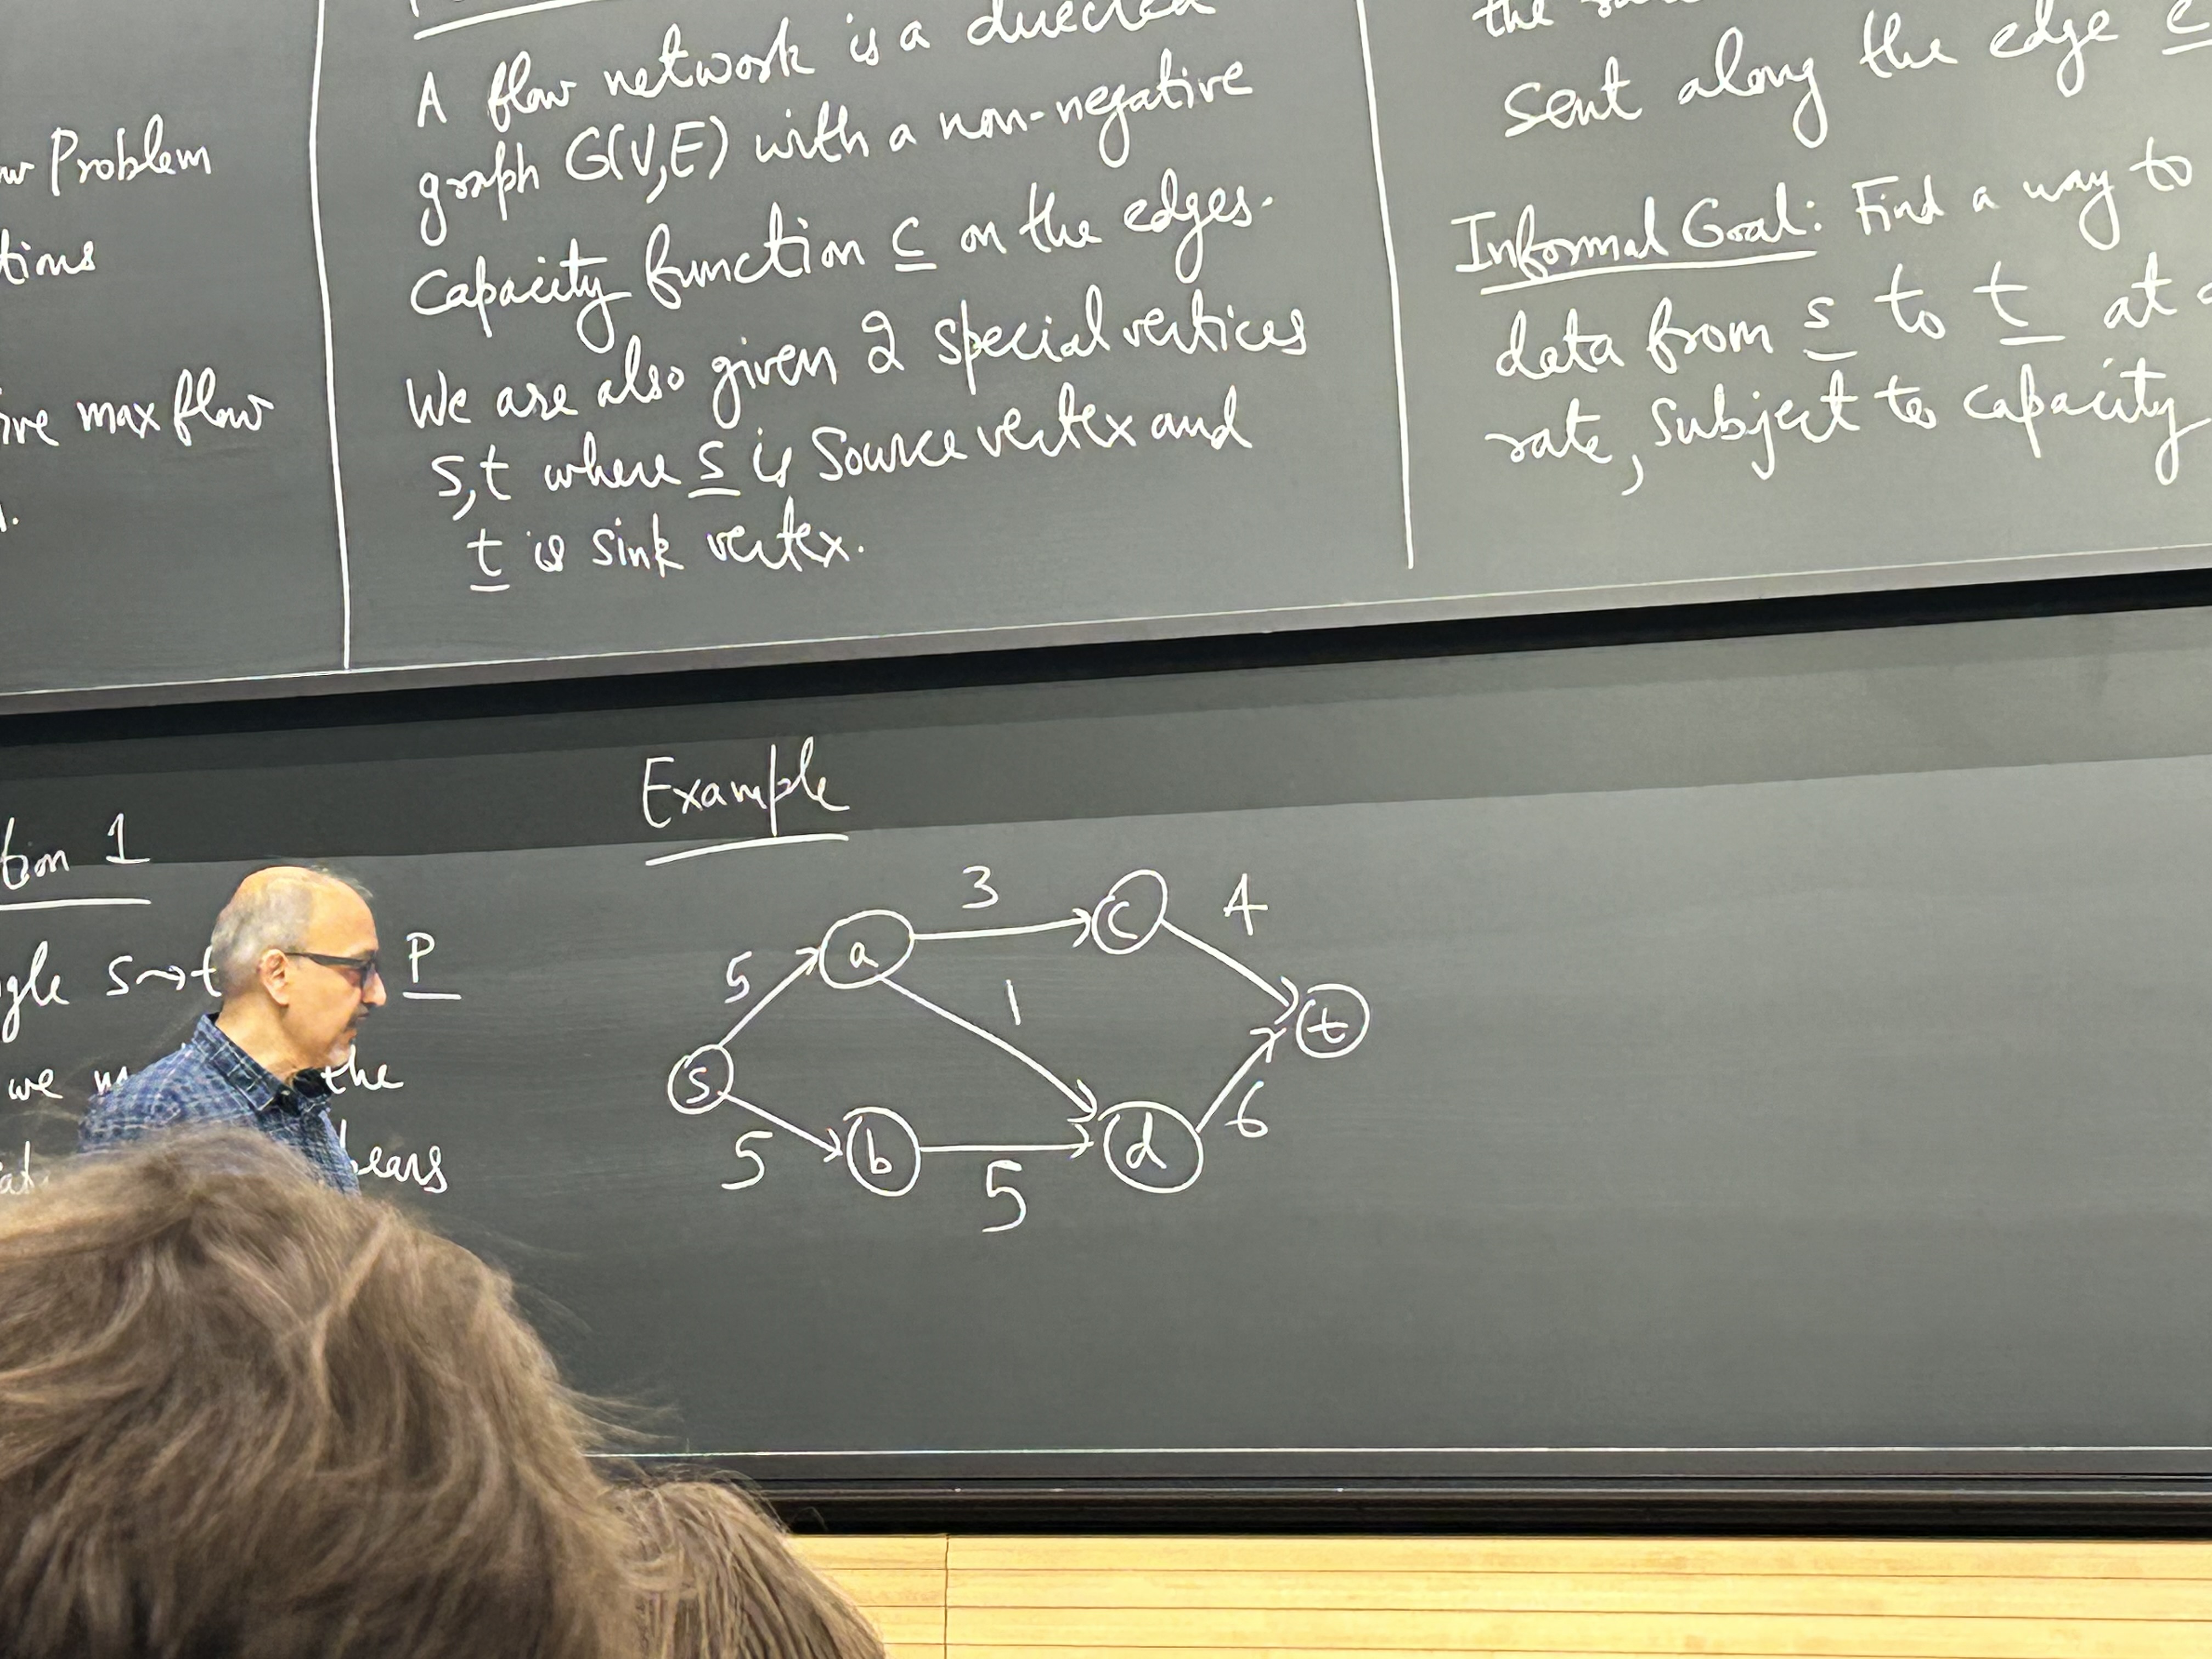 Problem
tions
max flow
A flow network is a directed
graph G(V,E) with a non-negative
Capacity function c on the edges.
We are also given 2 special vertices
s,t where s is Source vertex and
t is sink vertex.
the
sent along the edge e
Informal Goal: Find a way to
data from s to t at
rate, subject to capacity
tion 1
s⇝t P
we the
Example
3
4
a
c
5
1
t
s
6
b
d
5
5